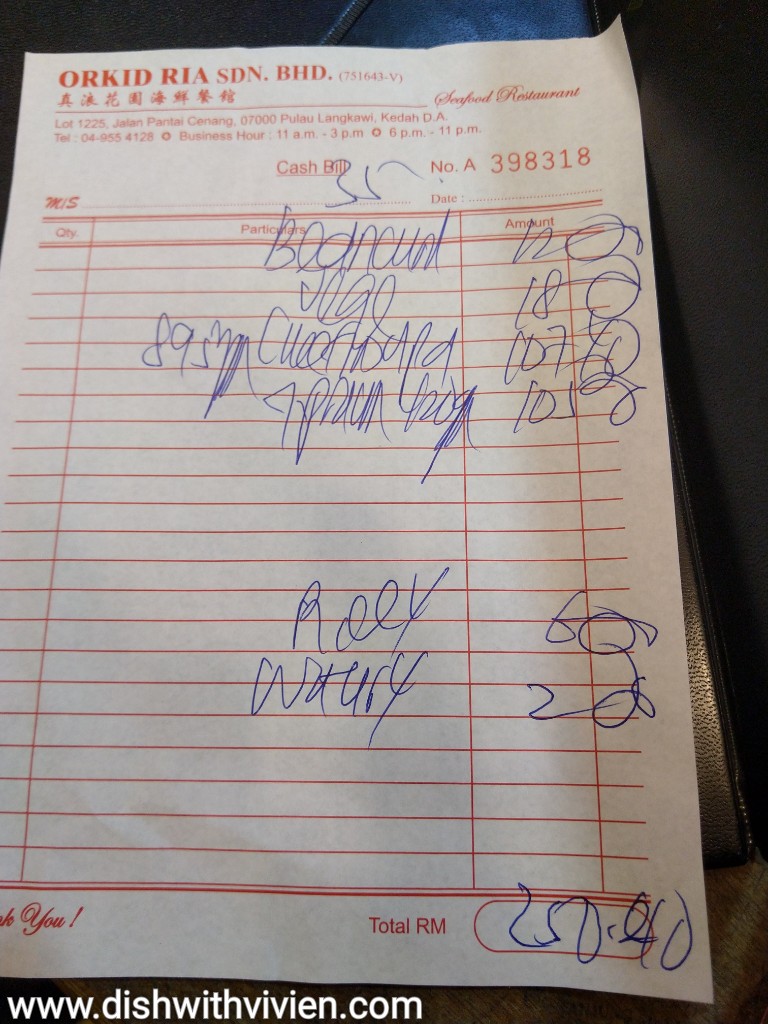 ORKID RIA SDN. BHD. (751643-V)
真浪花園海鮮餐館 Seafood Restaurant
Lot 1225, Jalan Pantai Cenang, 07000 Pulau Langkawi, Kedah D.A.
Tel : 04-955 4128 ✪ Business Hour : 11 a.m. - 3 p.m ✪ 6 p.m. - 11 p.m.
Cash Bill 35 No. A 398318
M/S Date :
Qty. Particulars Amount
12 00
18 0
107.40
prawn 105 00
6 00
2 00
You !
Total RM 250.40
www.dishwithvivien.com